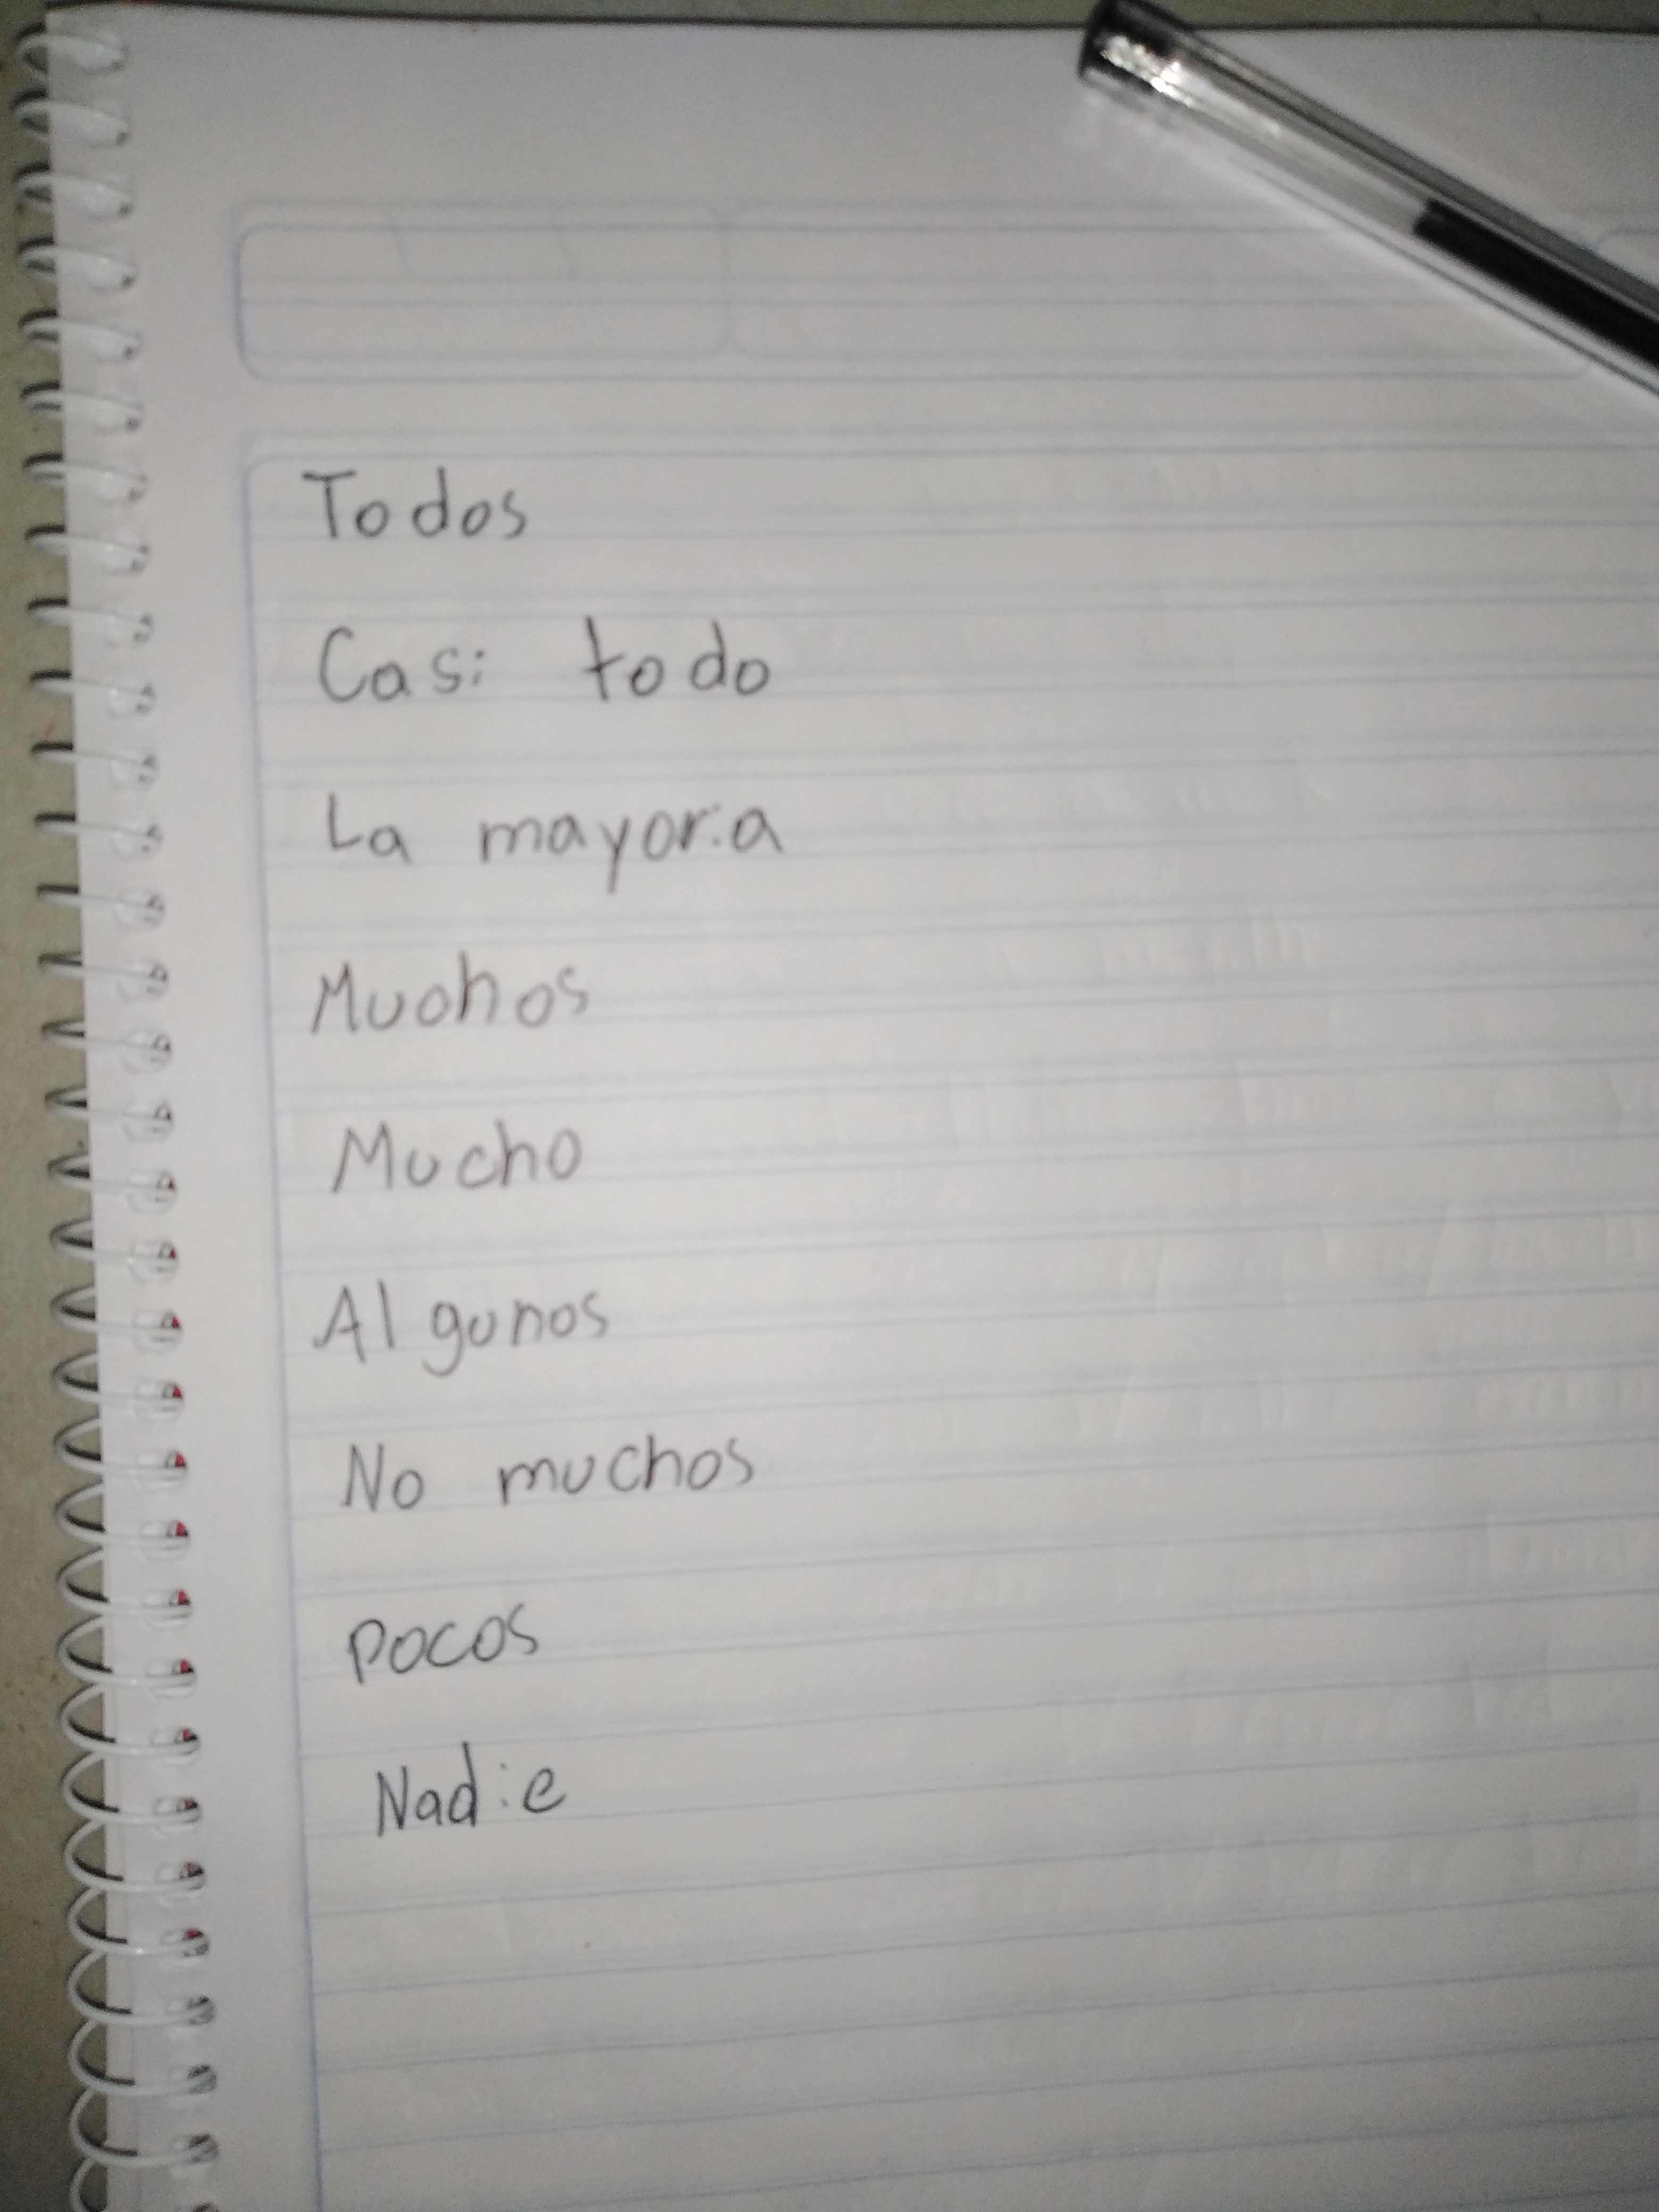 Todos
Casi todo
La mayoria
Muchos
Mucho
Algunos
No muchos
Pocos
Nadie